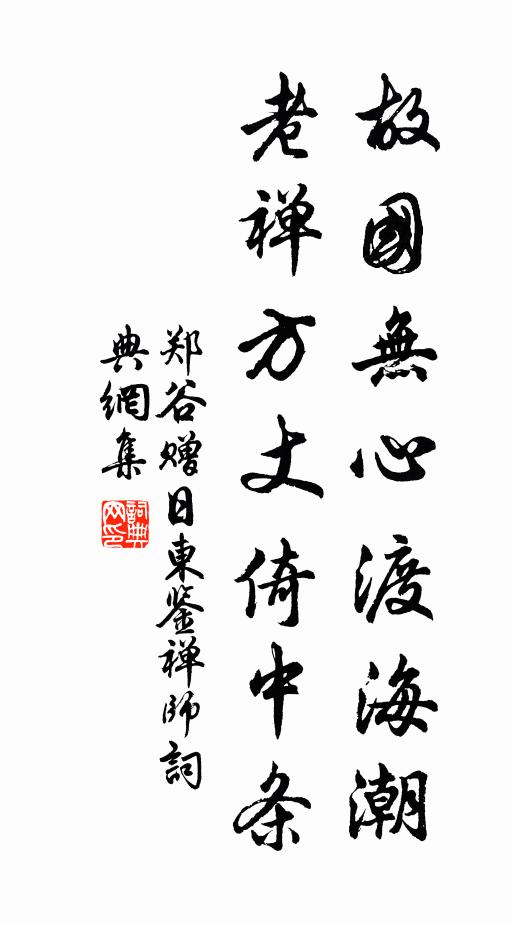 故國無心渡海潮
老禅方丈倚中条
郑谷赠日東鉴禅師詞
典網集
詞典
网印